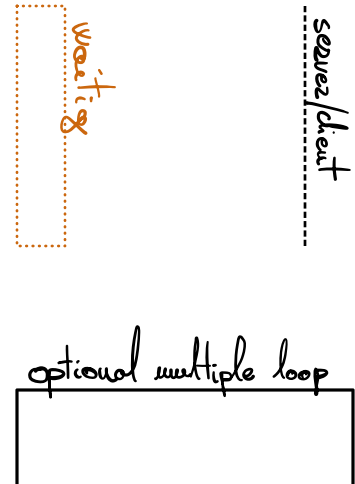 waiting
server/client
optional multiple loop